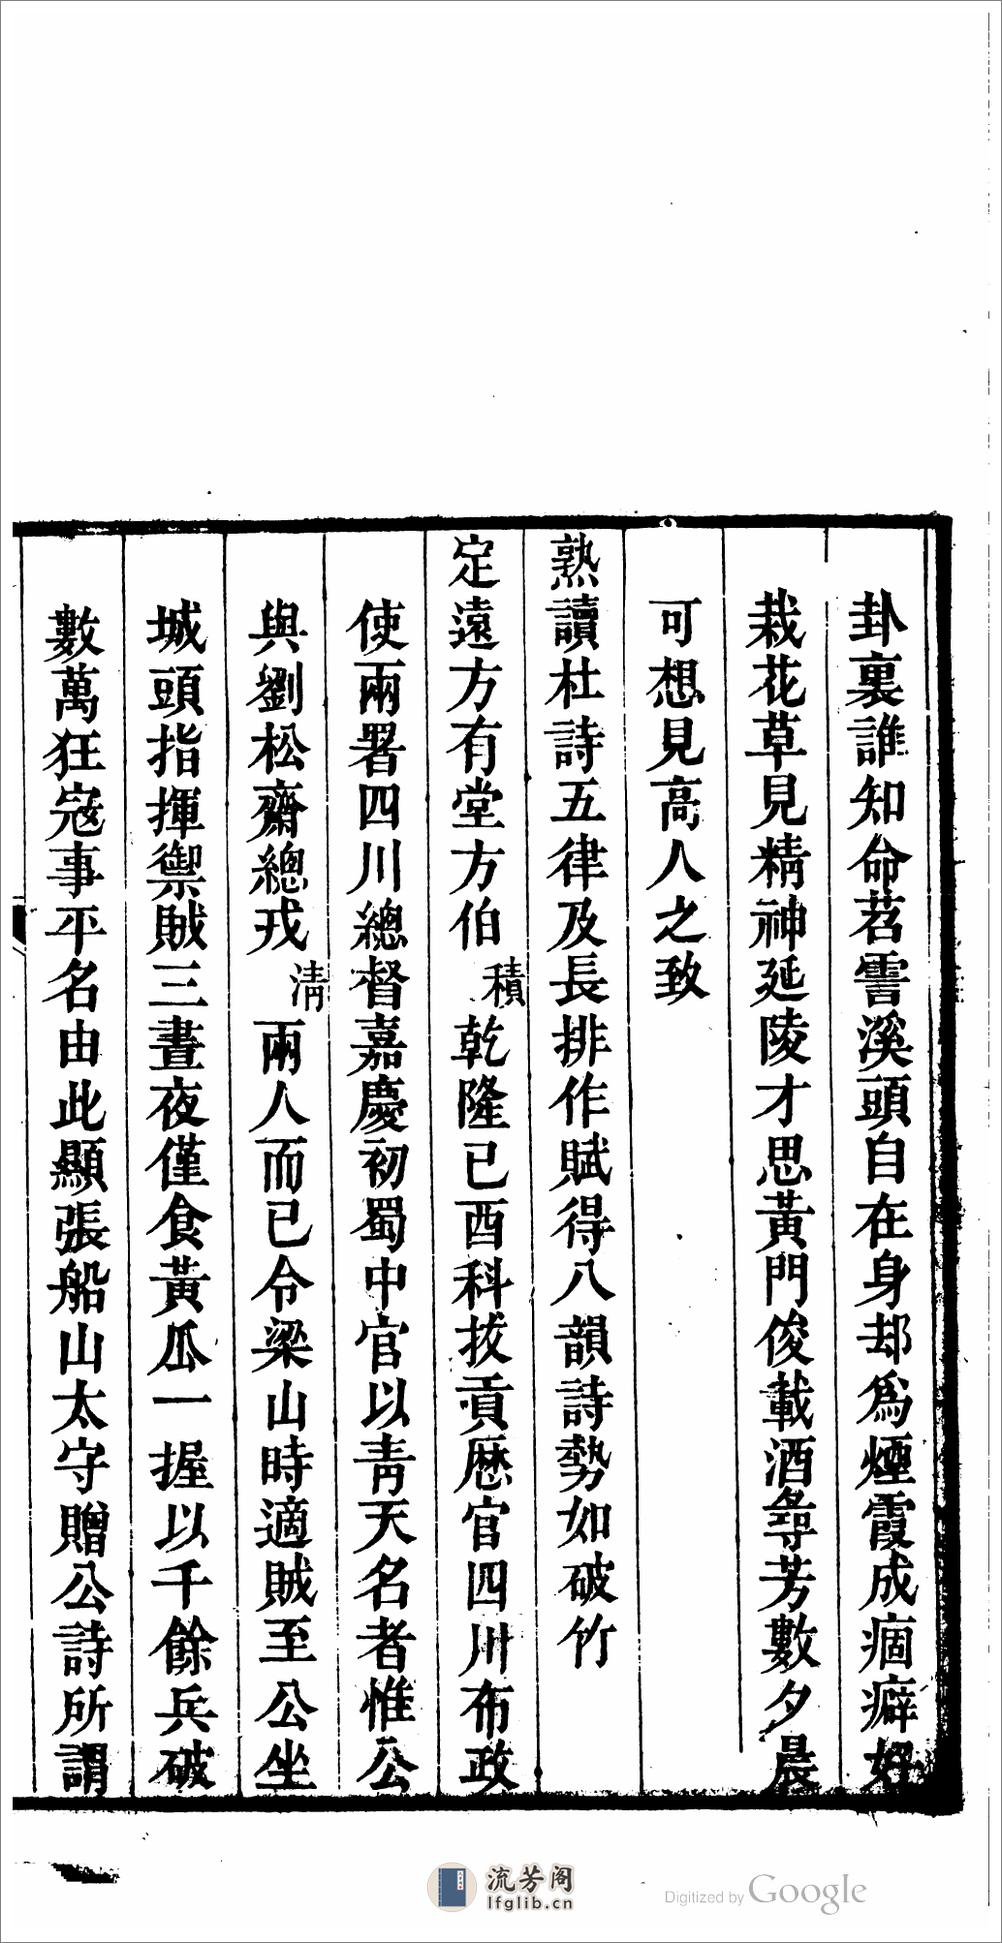 卦裏誰知命苕霅溪頭自在身却爲煙霞成痼癖好
栽花草見精神延陵才思黃門俊載酒尋芳數夕晨
可想見高人之致
熟讀杜詩五律及長排作賦得八韻詩勢如破竹
定遠方有堂方伯積乾隆已酉科拔貢歷官四川布政
使兩署四川總督嘉慶初蜀中官以青天名者惟公
與劉松齋總戎清兩人而已令梁山時適賊至公坐
城頭指揮禦賊三晝夜僅食黃瓜一握以千餘兵破
數萬狂寇事平名由此顯張船山太守贈公詩所謂
流芳阁
lfglib.cn
Digitized by Google